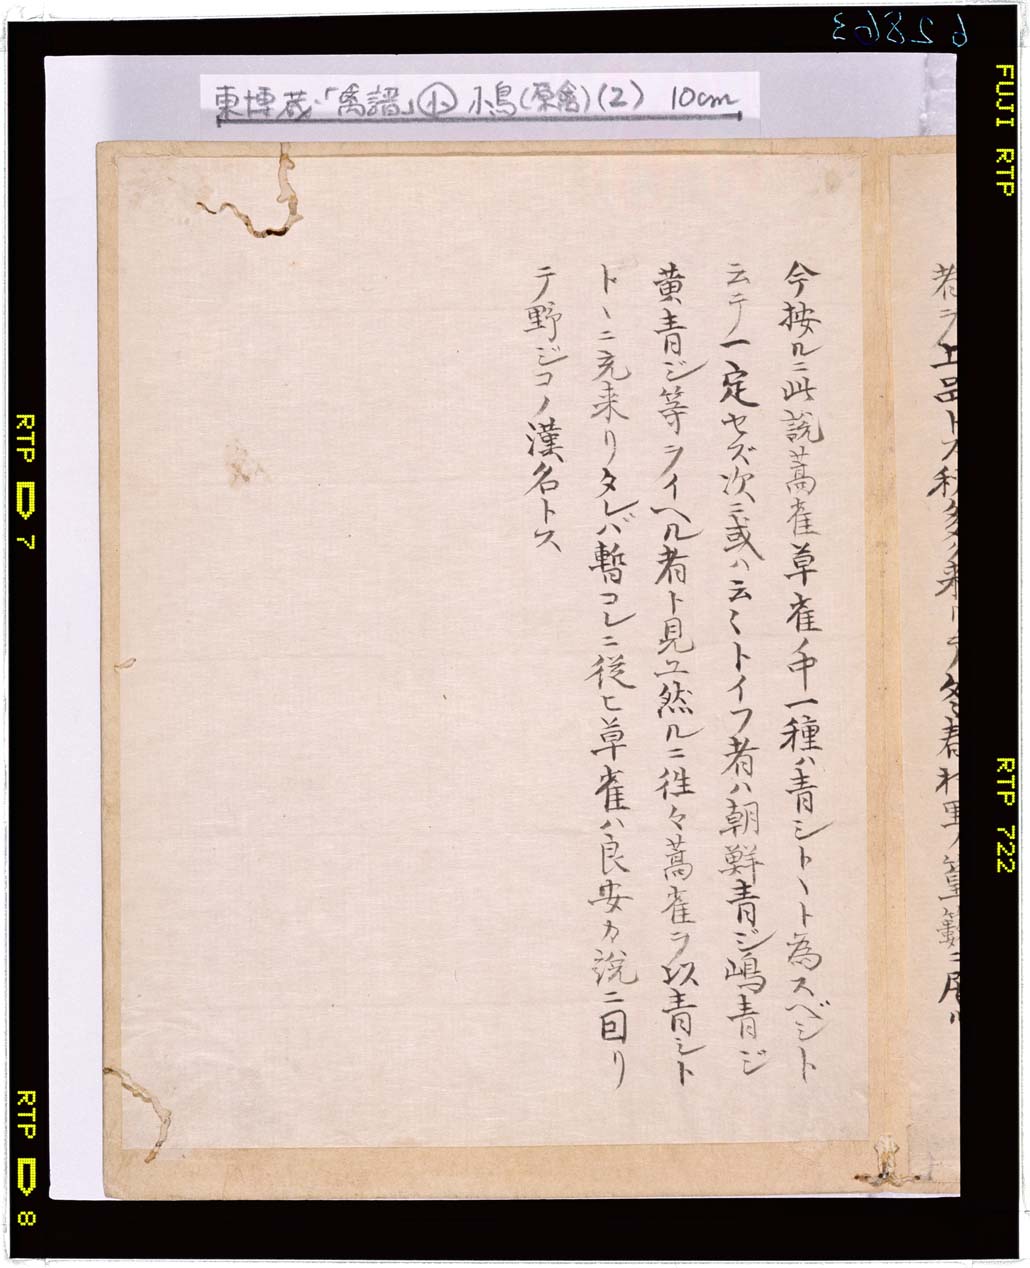 62863
FUJI RTP
東博蔵・「禽譜」㊥小鳥(原禽)(2) 10cm
今按ルニ此説蒿雀草雀ノ中一種ハ青シトヽト為スベシト
云テ一定セズ次ニ或ハ云々トイフ者ハ朝鮮青ジ嶋青ジ
黄青ジ等ヲイヘル者ト見ユ然ルニ徃々蒿雀ヲ以青シト
トヽニ充来リタレバ暫コレニ従ヒ草雀ハ良安カ説ニ因リ
テ野ジコノ漢名トス
者ヲ上品トス秋多ク来リテ冬春
RTP 7
RTP 722
RTP 8